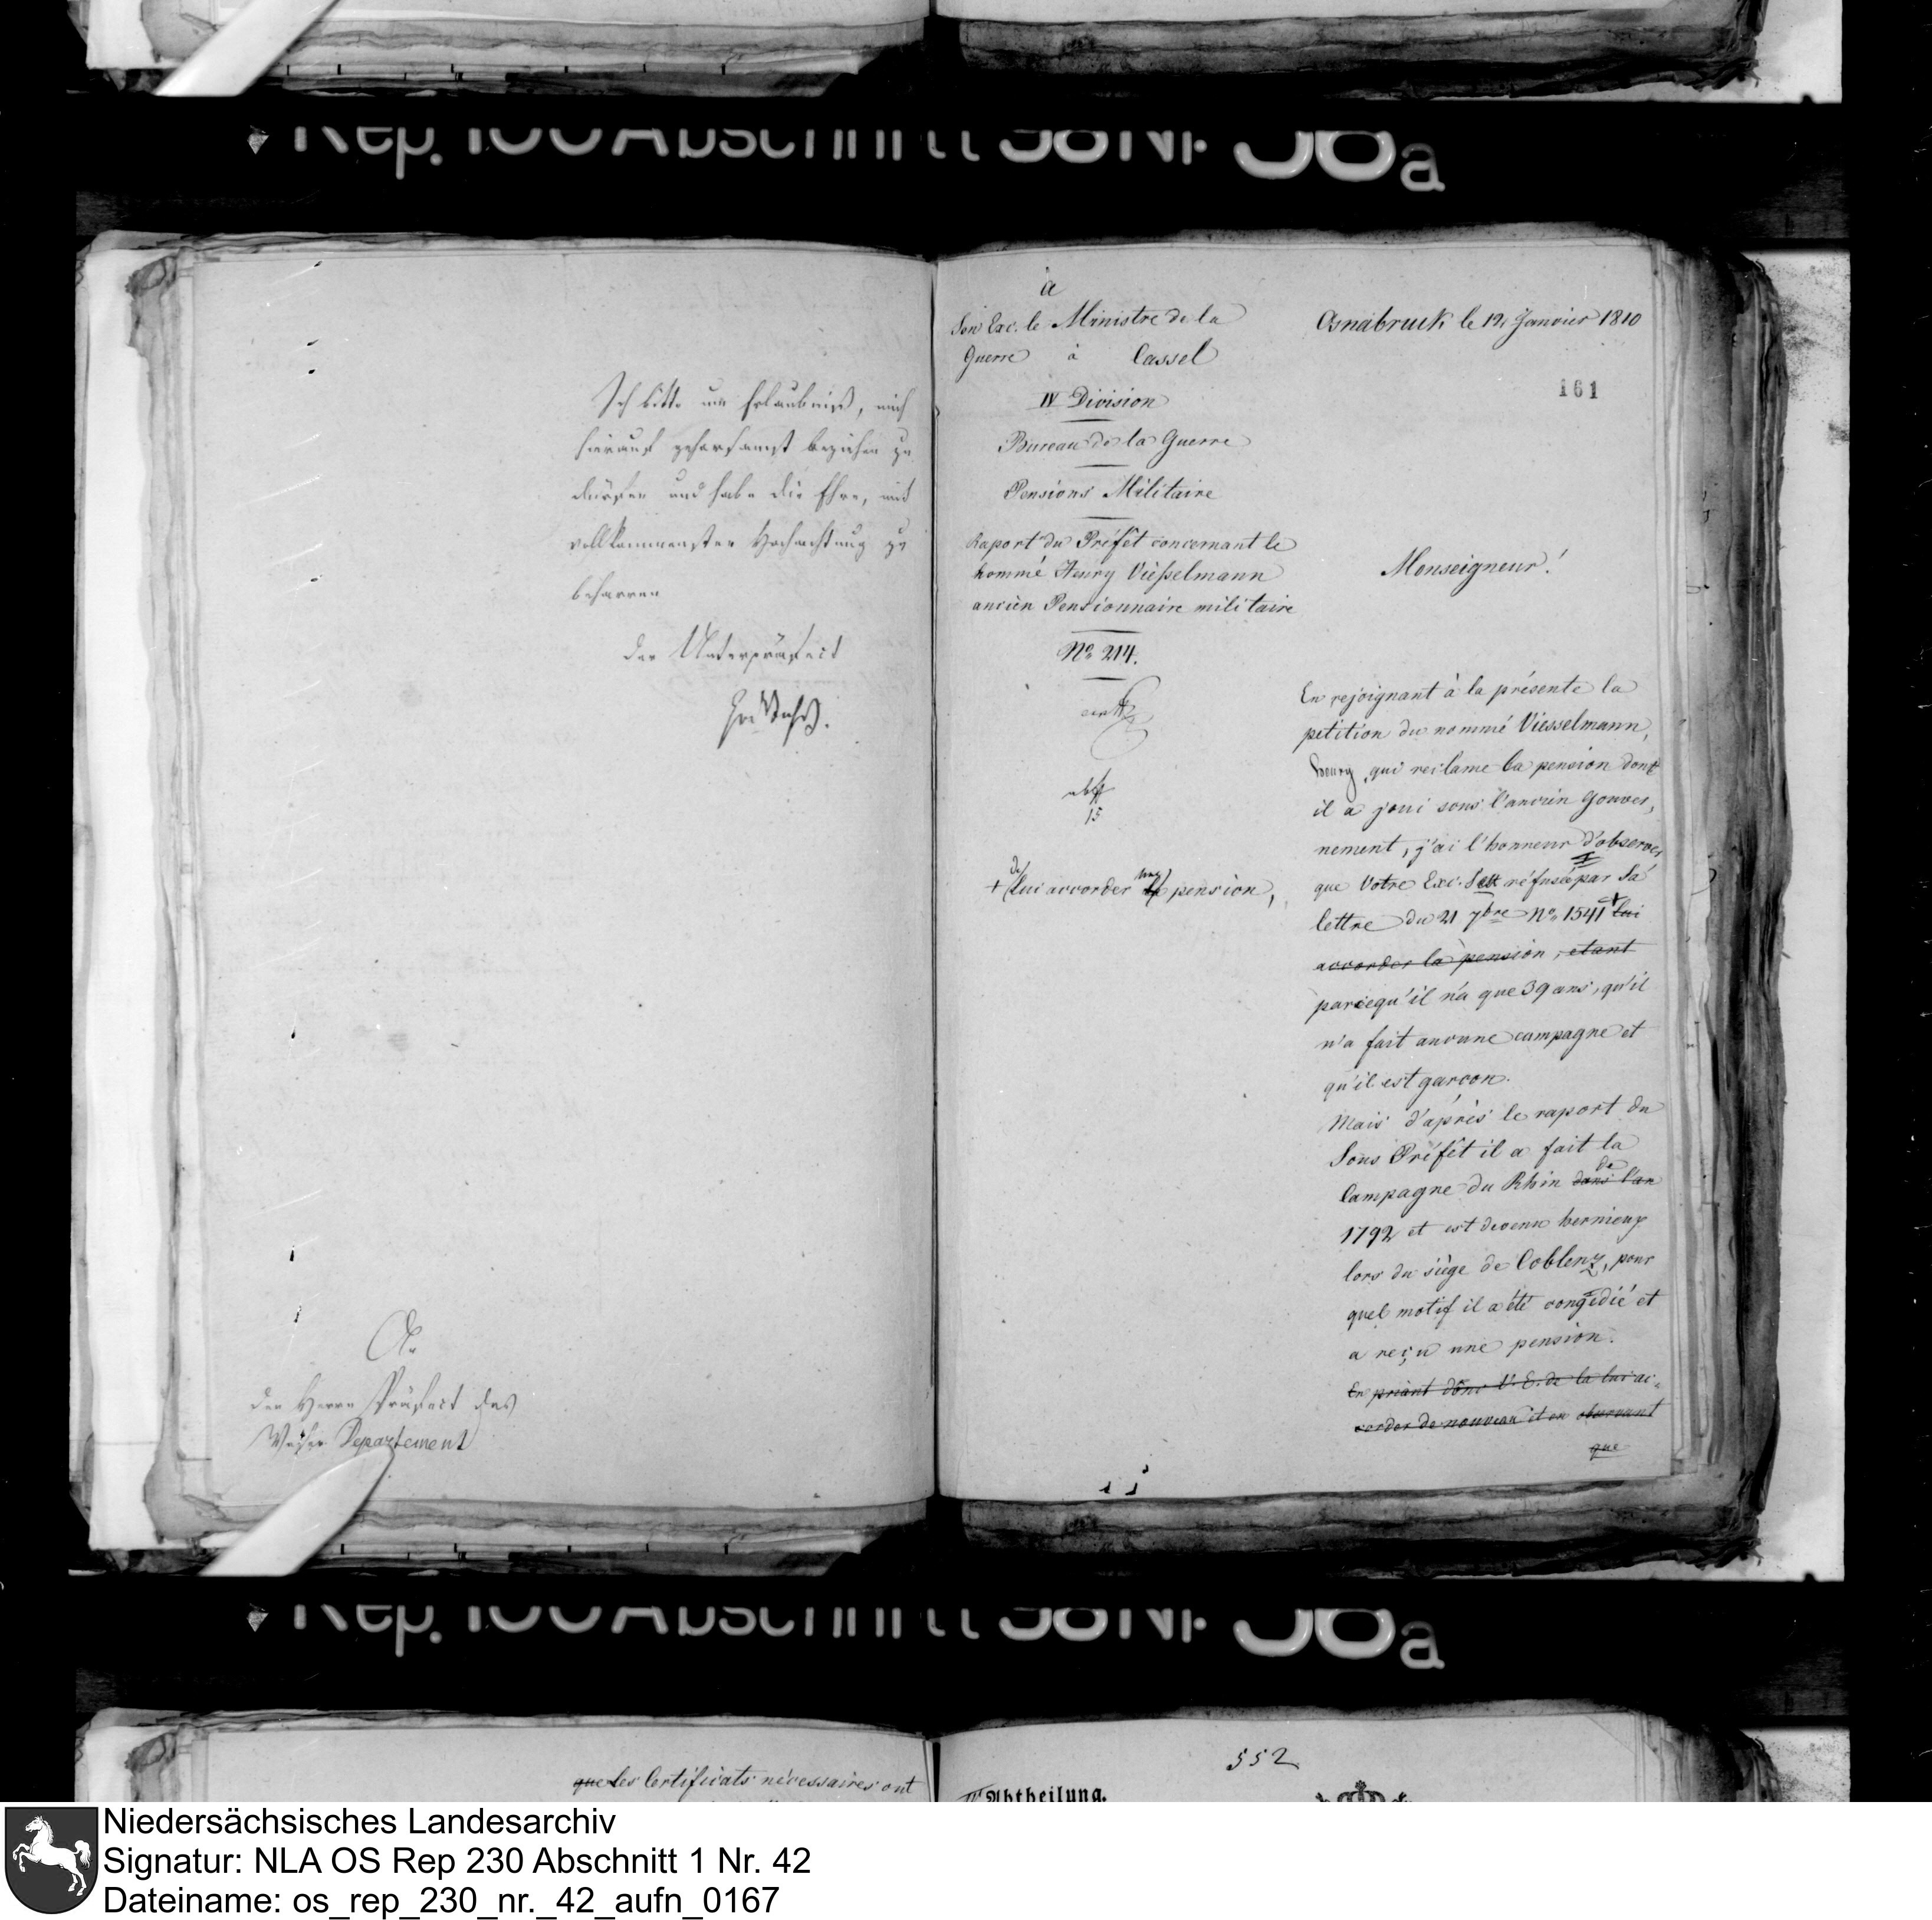 Rep. 100 Abschnitt 38 Nr. 38a
Ich bitte um Erlaubniß, mich
hierauf gehorsamst beziehen zu
dürfen und habe die Ehre, mit
vollkommenster Hochachtung zu
beharren
der Unterpräfect
An
den Herrn Präfect des
Weser Departement
à
Son Exc. le Ministre de la
Guerre à Cassel
IV Division
Bureau de la Guerre
Pensions Militaire
Raport du Préfêt concernant le
nommé Henry Vießelmann
ancien Pensionnaire militaire
No 214.
15
de
une
+ lui accorder la pension,
Osnabruck le 12 Janvier 1810
161
Monseigneur!
En rejoignant à la présente la
petition du nommé Viesselmann,
henry, qui reclame la pension dont
il a joui sous l'ancien Gouver,
nement, j'ai l'honneur d'observer
que Votre Exc. s'est réfusée par Sa
lettre du 21 7bre No 1541 + lui
accorder la pension, etant
parcequ'il n'a que 39 ans, qu'il
n'a fait aucune campagne et
qu'il est garcon.
Mais d'après le raport du
Sous Préfêt il a fait la
de
Campagne du Rhin dans l'an
1792 et est devenu hernieux
lors du siège de Coblenz, pour
quel motif il a été congédié et
a reçu une pension.
En priant donc V. E. de la lui ac-
corder de nouveau et en observant
que
Rep. 100 Abschnitt 38 Nr. 38a
que les Certificats nécessaires ont
552
Abtheilung.
Niedersächsisches Landesarchiv
Signatur: NLA OS Rep 230 Abschnitt 1 Nr. 42
Dateiname: os_rep_230_nr._42_aufn_0167